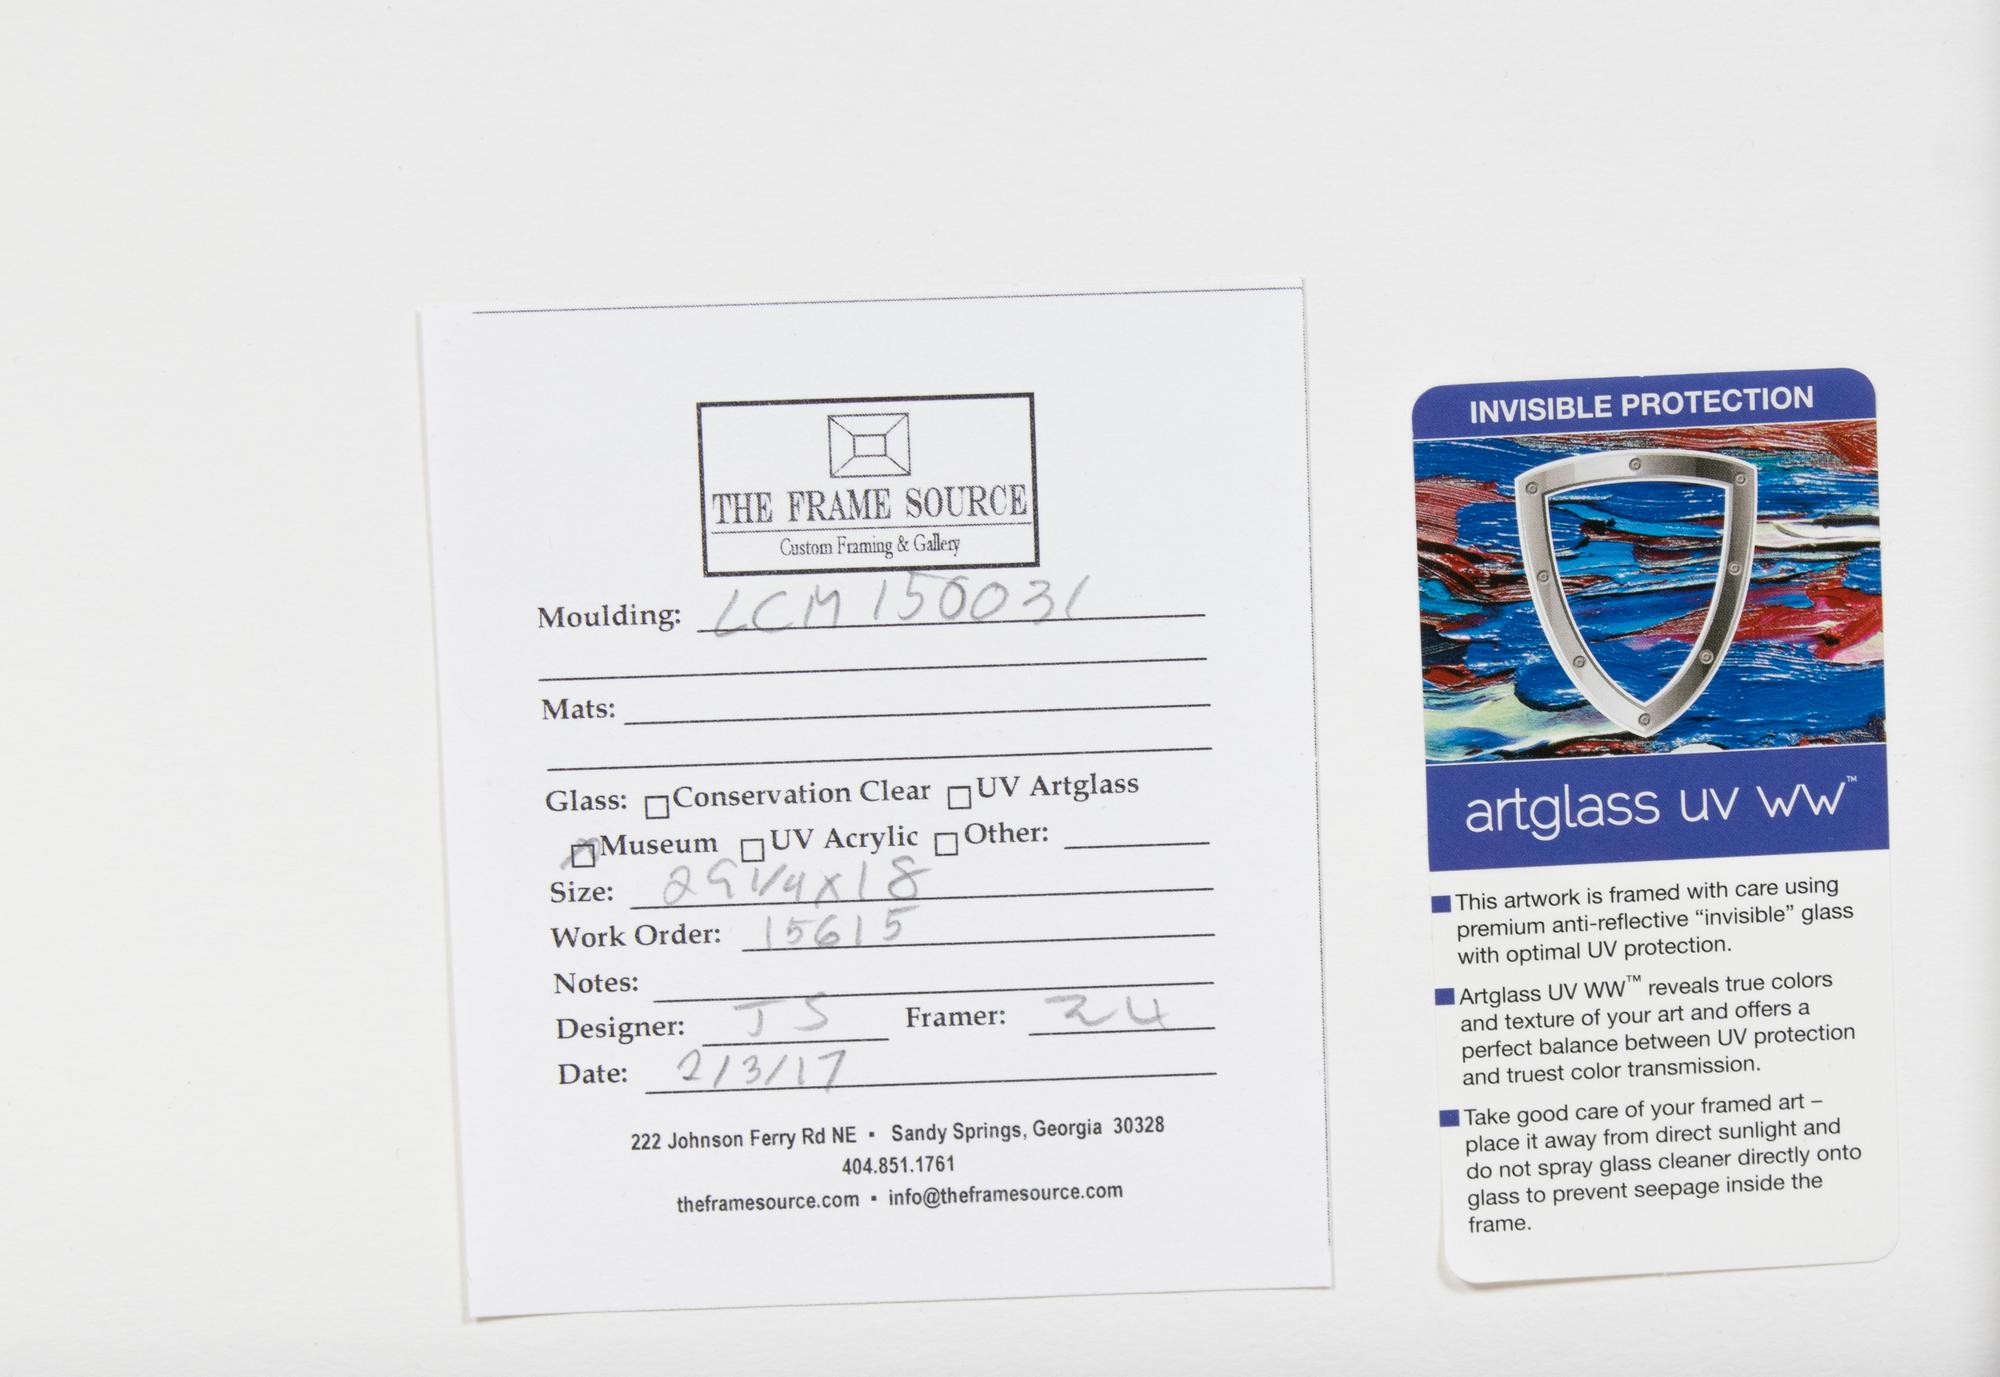 THE FRAME SOURCE
Custom Framing & Gallery
Moulding: LCM 150031
Mats:
Glass: Conservation Clear UV Artglass
Museum UV Acrylic Other:
Size: 29 1/4 x 18
Work Order: 15615
Notes:
Designer: JS Framer:
Date: 2/3/17
222 Johnson Ferry Rd NE ▪ Sandy Springs, Georgia 30328
404.851.1761
theframesource.com ▪ info@theframesource.com
INVISIBLE PROTECTION
artglass UV WW™
This artwork is framed with care using
premium anti-reflective “invisible” glass
with optimal UV protection.
Artglass UV WW™ reveals true colors
and texture of your art and offers a
perfect balance between UV protection
and truest color transmission.
Take good care of your framed art –
place it away from direct sunlight and
do not spray glass cleaner directly onto
glass to prevent seepage inside the
frame.